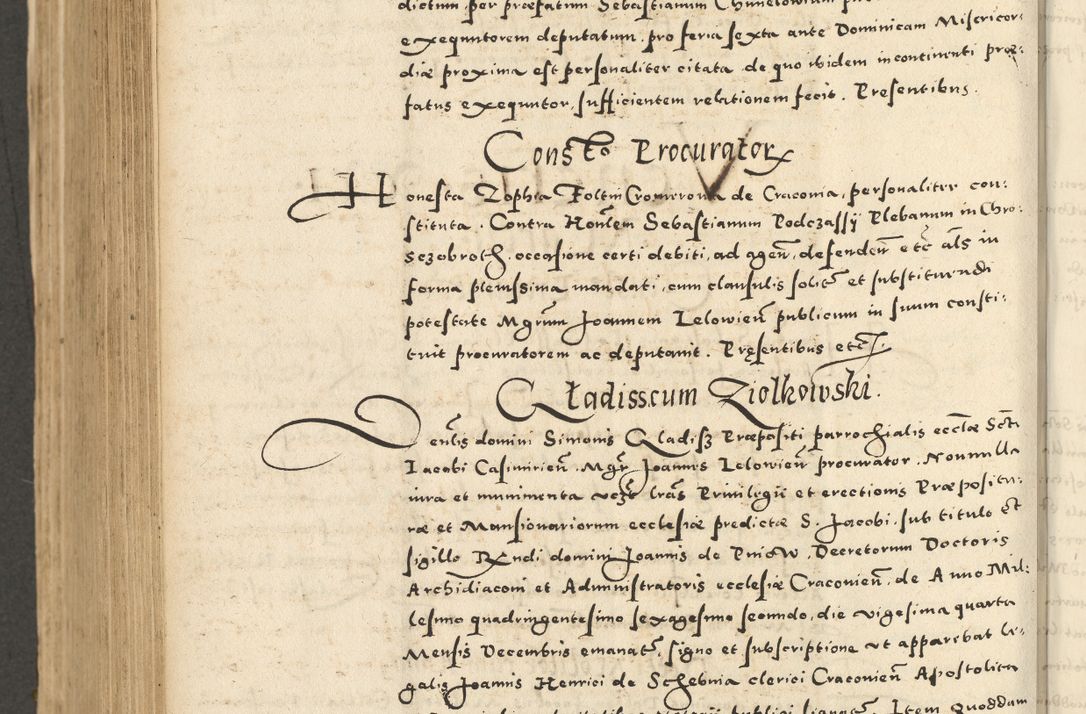 dictum per præfatum Sebastianum
exequutorem deputatum, pro feria sexta ante Dominicam Misericor:
diæ proxima est personaliter citata, de quo ibidem incontinenti præ:
fatus exequutor, sufficientem relationem fecit. Presentibus.
Constō Procurator
Honesta Zophia Foltin Cromerowa de Craconia, personaliter con:
stituta. Contra Honlem Sebastianum Podczassÿ Plebanum in Chro:
sczobroth. occasione certi debiti, ad agen, defenden etc als in
forma plenissima mandati, cum clausulis solit et substituendi
potestate Mgrum Joannem Lelowien publicum in suum consti:
tuit procuratorem ac deputauit. Pręsentibus etc
Gladisscum Ziolkowski.
Denlis domini Simonis Gladisz Præpositi parrochialis ecclæ Scti
Iacobi Casimirien. Mgr Joannis Lelowien procurator. Nonnulla
iura et munimenta vezt lras Priuilegii et erectionis Præpositu:
ræ et Mansionariorum ecclesiæ predictæ S. Jacobi, sub titulo et
sigillo Rxndi domini Joannis de Pniow, Decretorum Doctoris
Archidiaconi et Administratoris ecclesiæ Craconien, de Anno Mil:
lesimo quadringentesimo sexagesimo secundo, die vigesima quarta
Mensis Decembris emanat, signo et subscriptione ut apparebat le:
galis Joannis Henrici de Schebnia clerici Craconien Apostolica
Item Quoddam